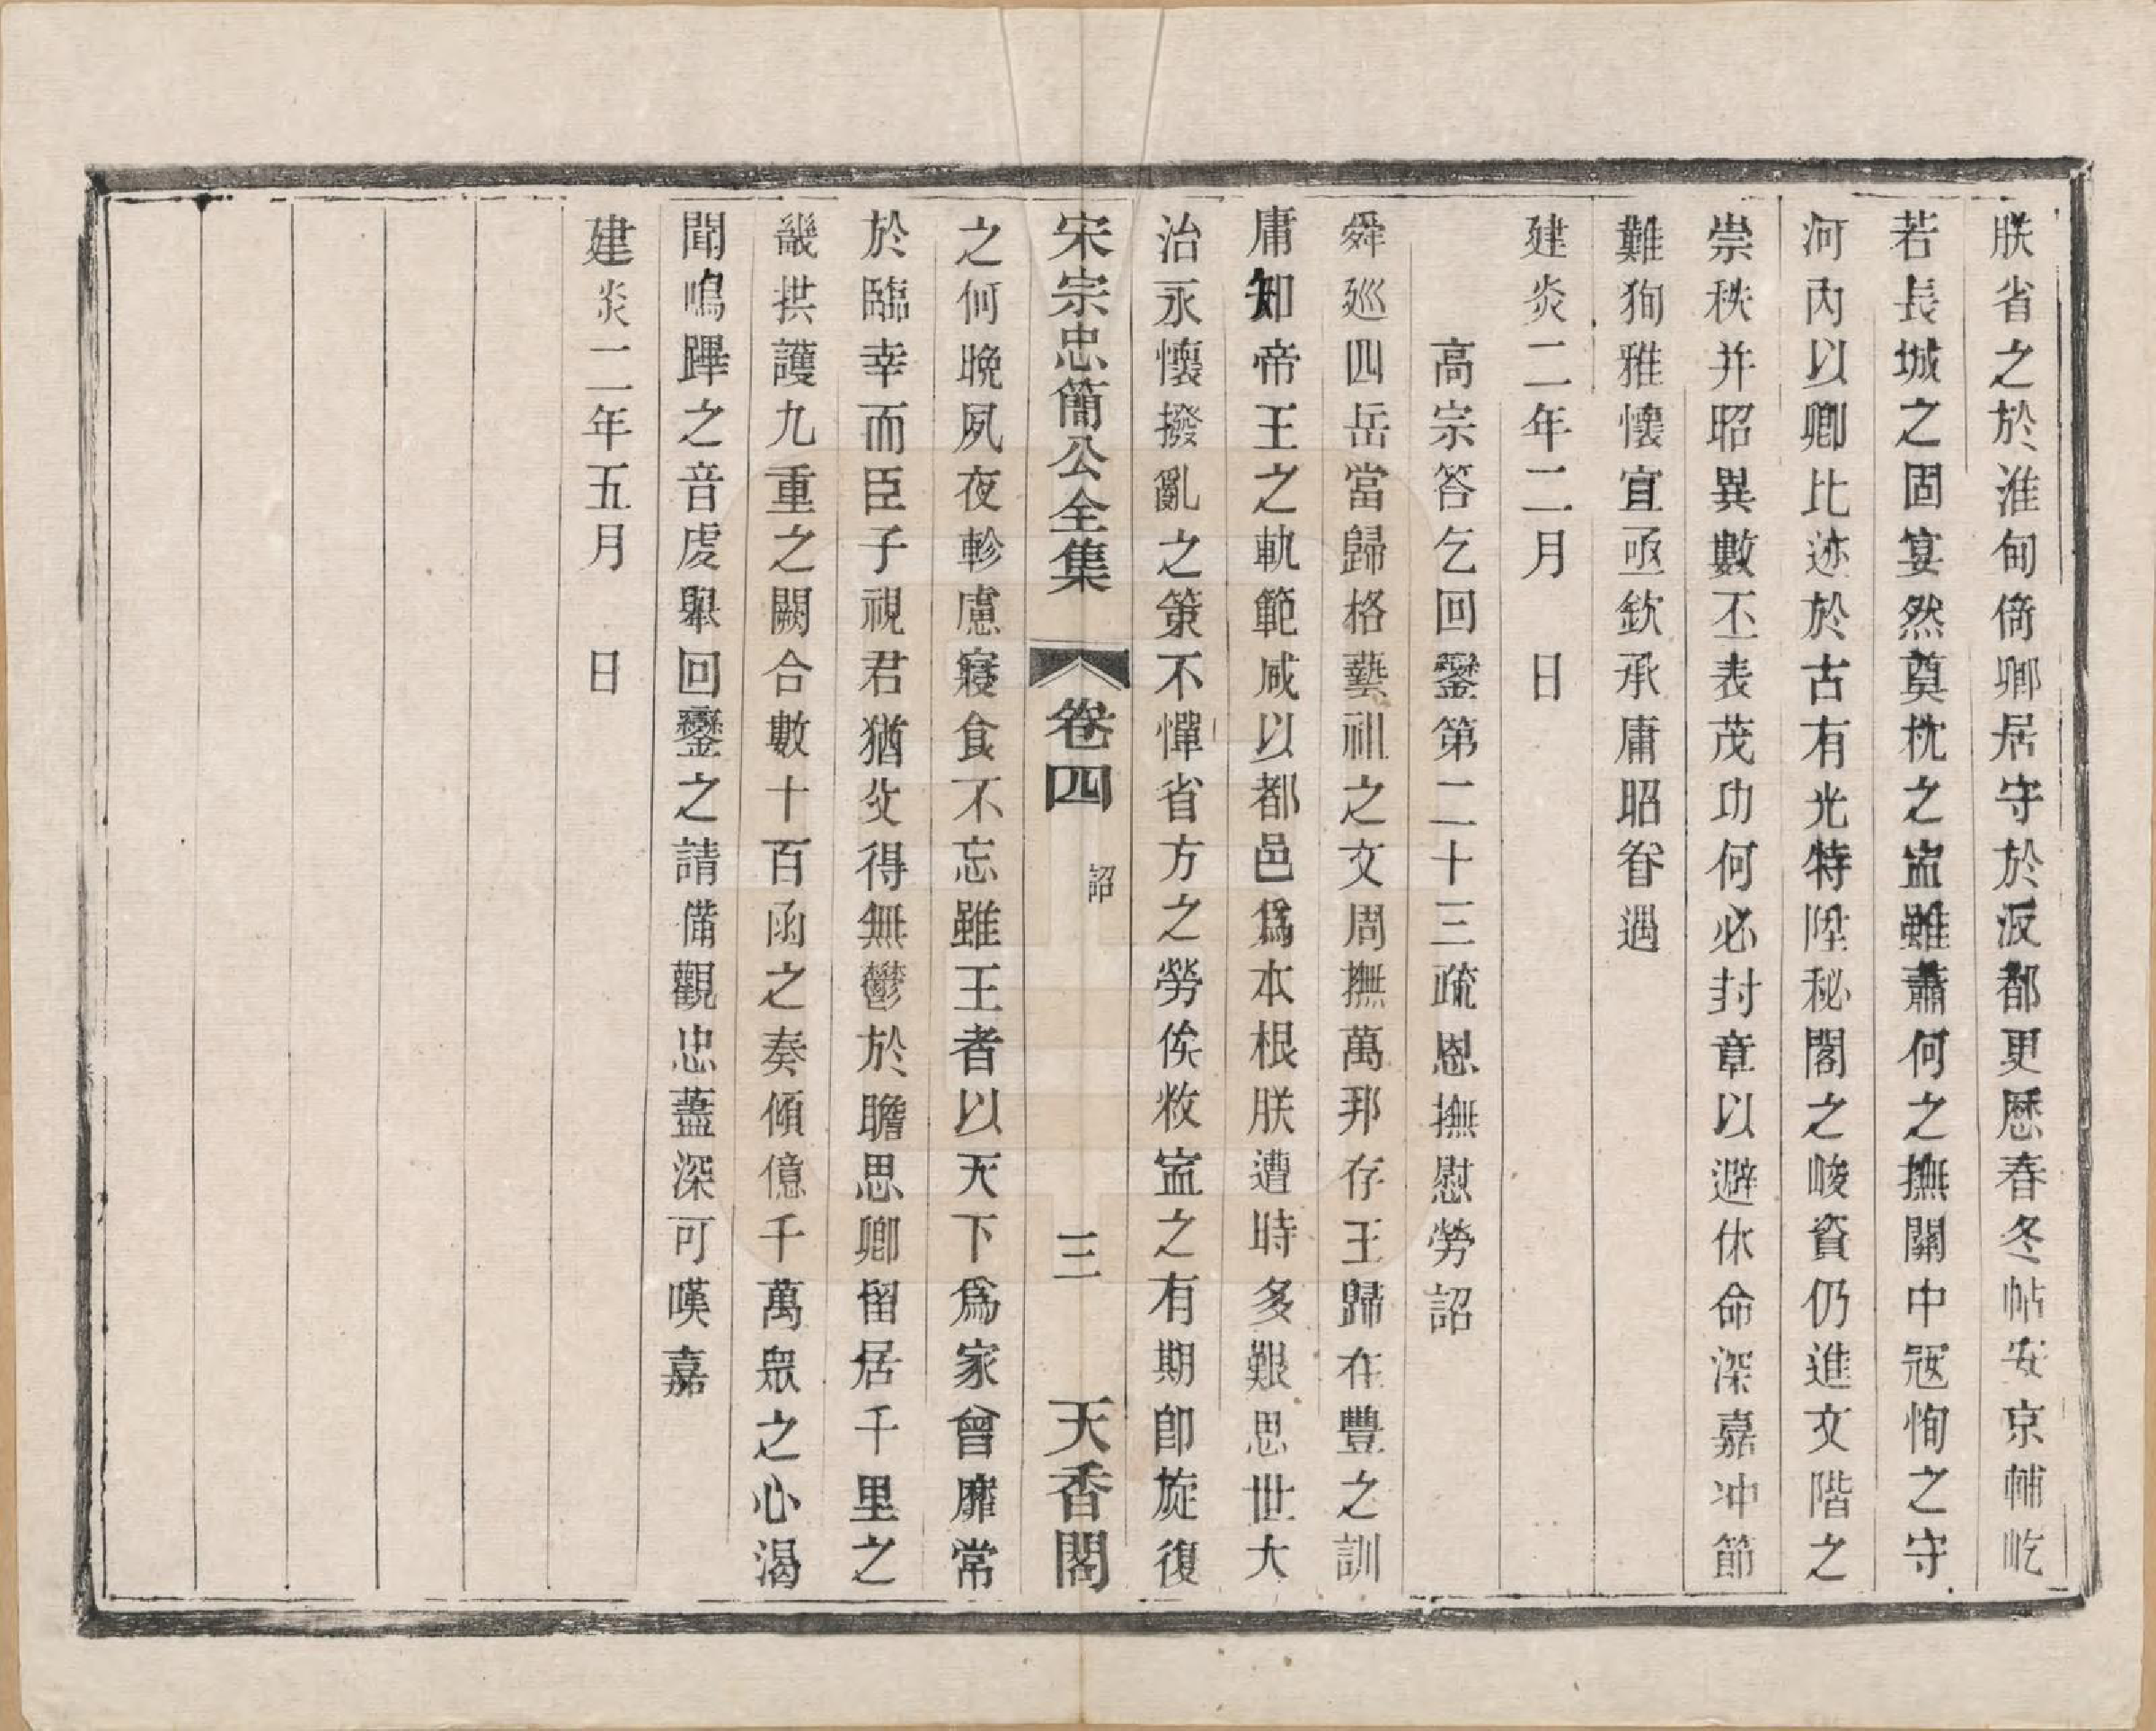 朕省之於淮甸倚卿居守於汳都更厯春冬帖安京輔屹
若長城之固宴然奠枕之寍雖蕭何之撫關中冦恂之守
河內以卿比迹於古有光特陞秘閣之峻資仍進文階之
崇秩并昭異數丕表茂功何必封章以避休命深嘉冲節
難狥雅懷宜亟欽承庸昭眷遇
建炎二年二月　日
高宗答乞回鑾第二十三疏恩撫慰勞詔
舜廵四岳當歸格藝祖之文周撫萬邦存王歸在豐之訓
庸知帝王之軌範咸以都邑爲本根朕遭時多艱思世大
治永懷撥亂之策不憚省方之勞俟敉寍之有期卽旋復
宋宗忠簡公全集　卷四　詔　三　天香閣
之何晩夙夜軫慮寢食不忘雖王者以天下爲家曾靡常
於臨幸而臣子視君猶父得無鬱於瞻思卿留居千里之
畿拱護九重之闕合數十百函之奏傾億千萬眾之心渴
聞鳴蹕之音虔舉回鑾之請備觀忠藎深可嘆嘉
建炎二年五月　日